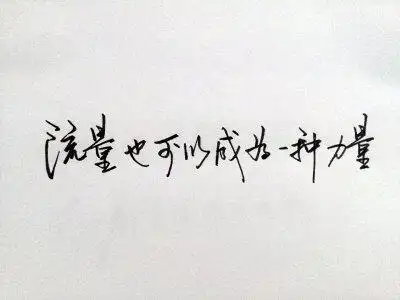 流量也可以成为一种力量